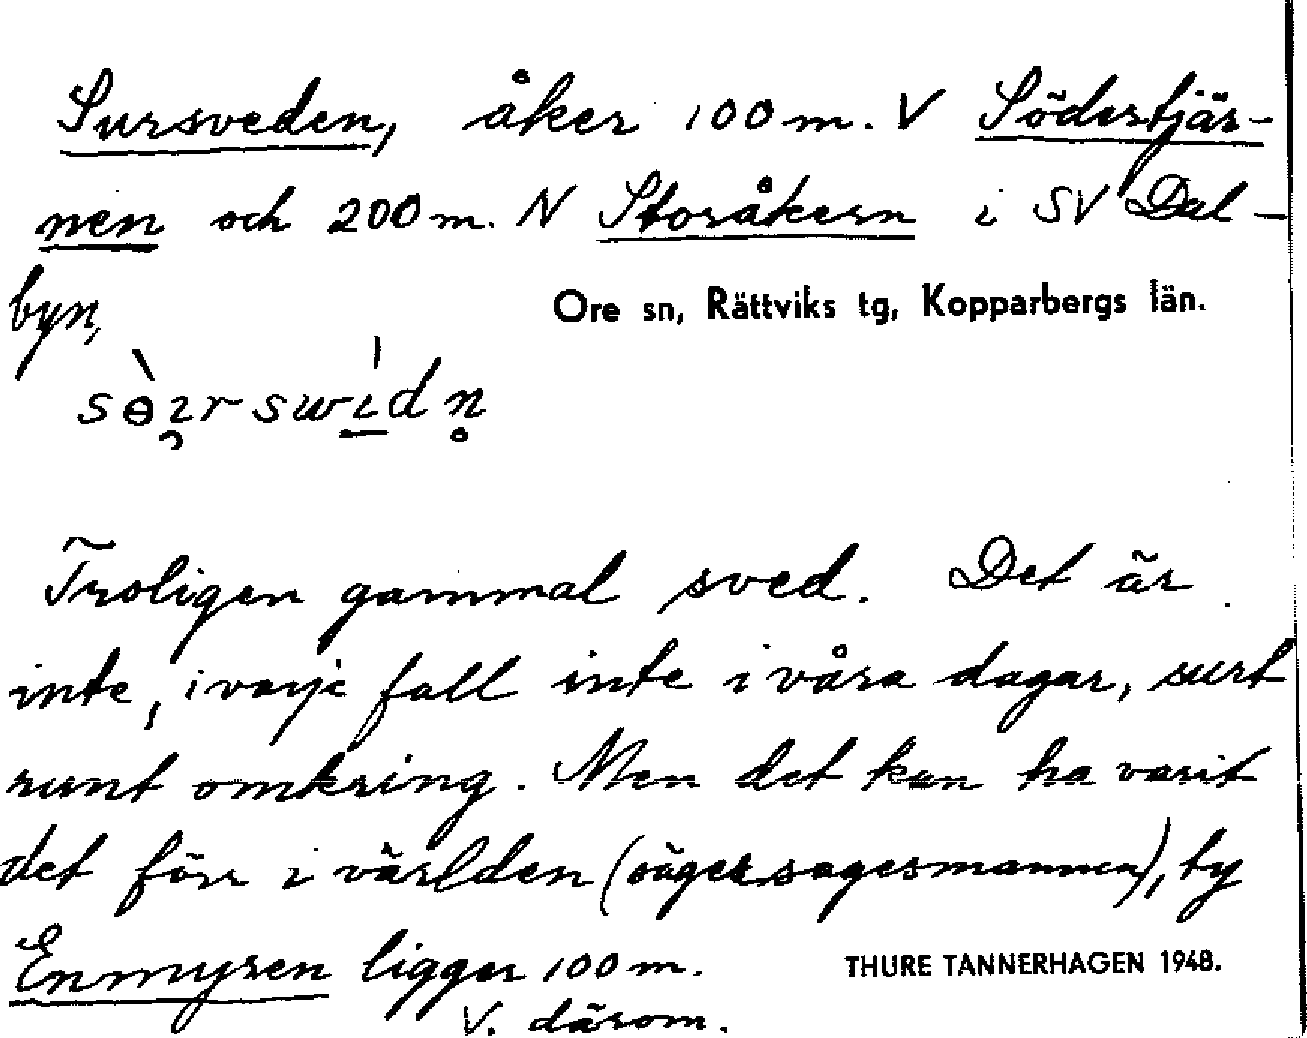 Sursveden, åker 100 m. V Södertjär-
nen och 200 m. N Storåkern i SV Dal-
byn,
Ore sn, Rättviks tg, Kopparbergs län.
Troligen gammal sved. Det är
inte, i varje fall inte i våra dagar, surt
runt omkring. Men det kan ha varit
det förr i världen (säger sagesmannen), ty
Enmyren ligger 100 m.
THURE TANNERHAGEN 1948.
V. därom.